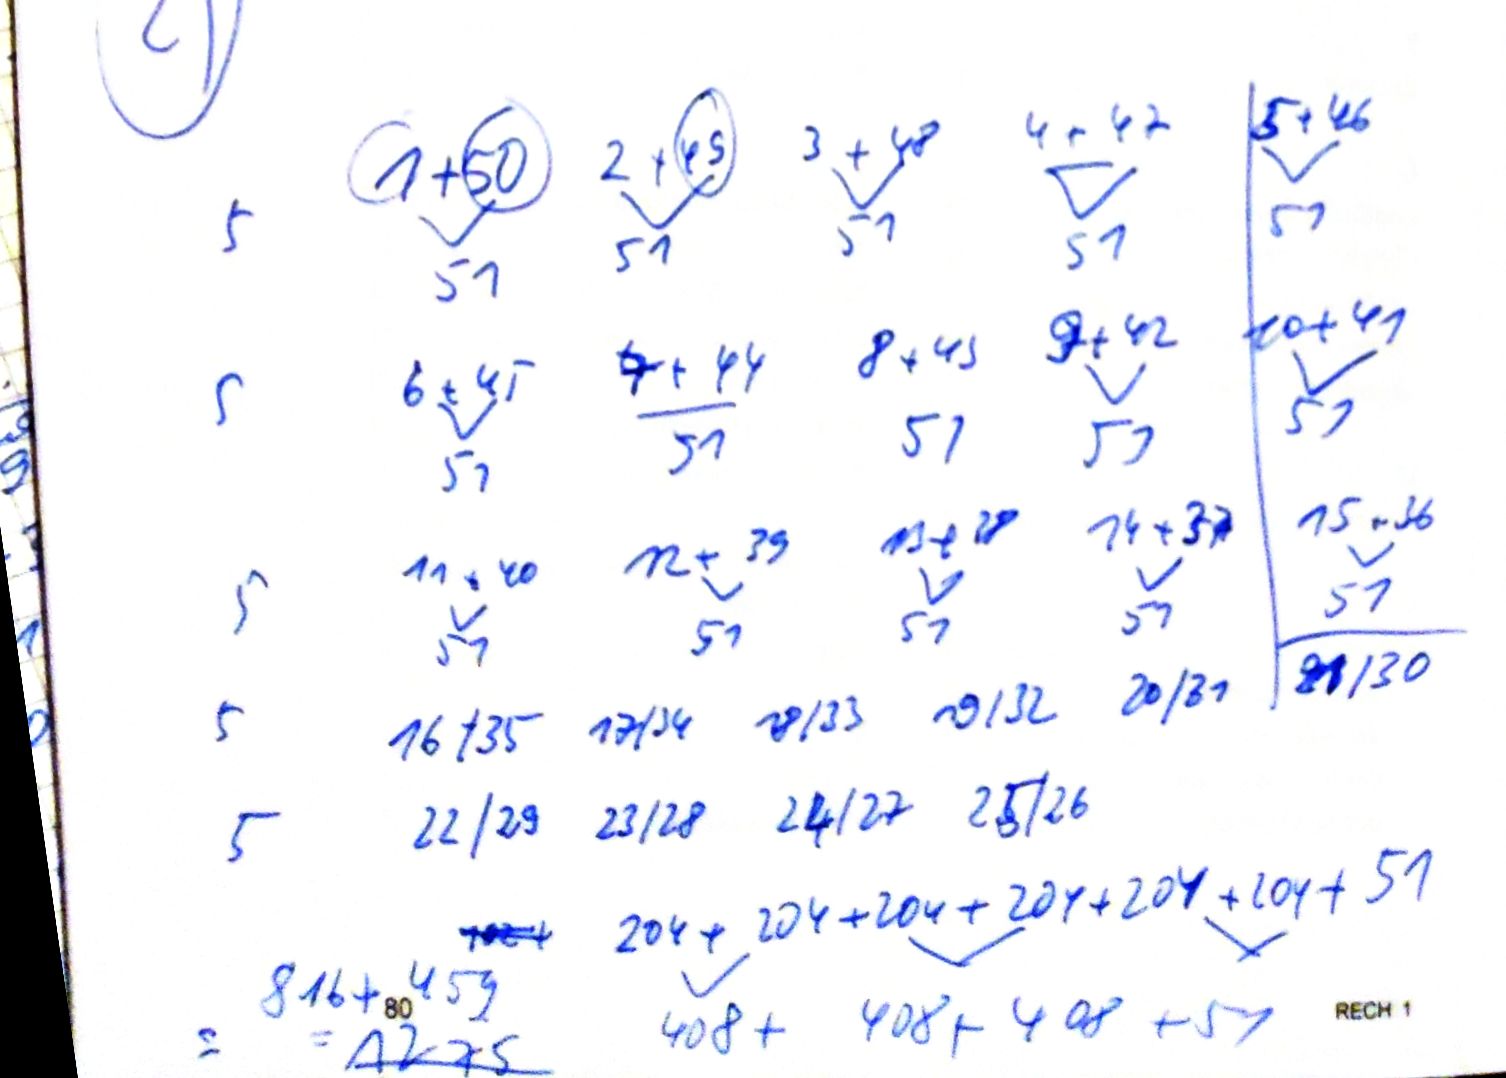 2)
1+50 2+49 3+48 4+47 5+46
5 51 51 51 51 51
5 6+45 7+44 8+43 9+42 10+41
51 51 51 51 51
5 11+40 12+39 13+38 14+37 15+36
51 51 51 51 51
5 16/35 17/34 18/33 19/32 20/31 21/30
5 22/29 23/28 24/27 25/26
204+204+204+204+204+204+51
816+459 408+408+408+51
= = 1275
80
RECH 1